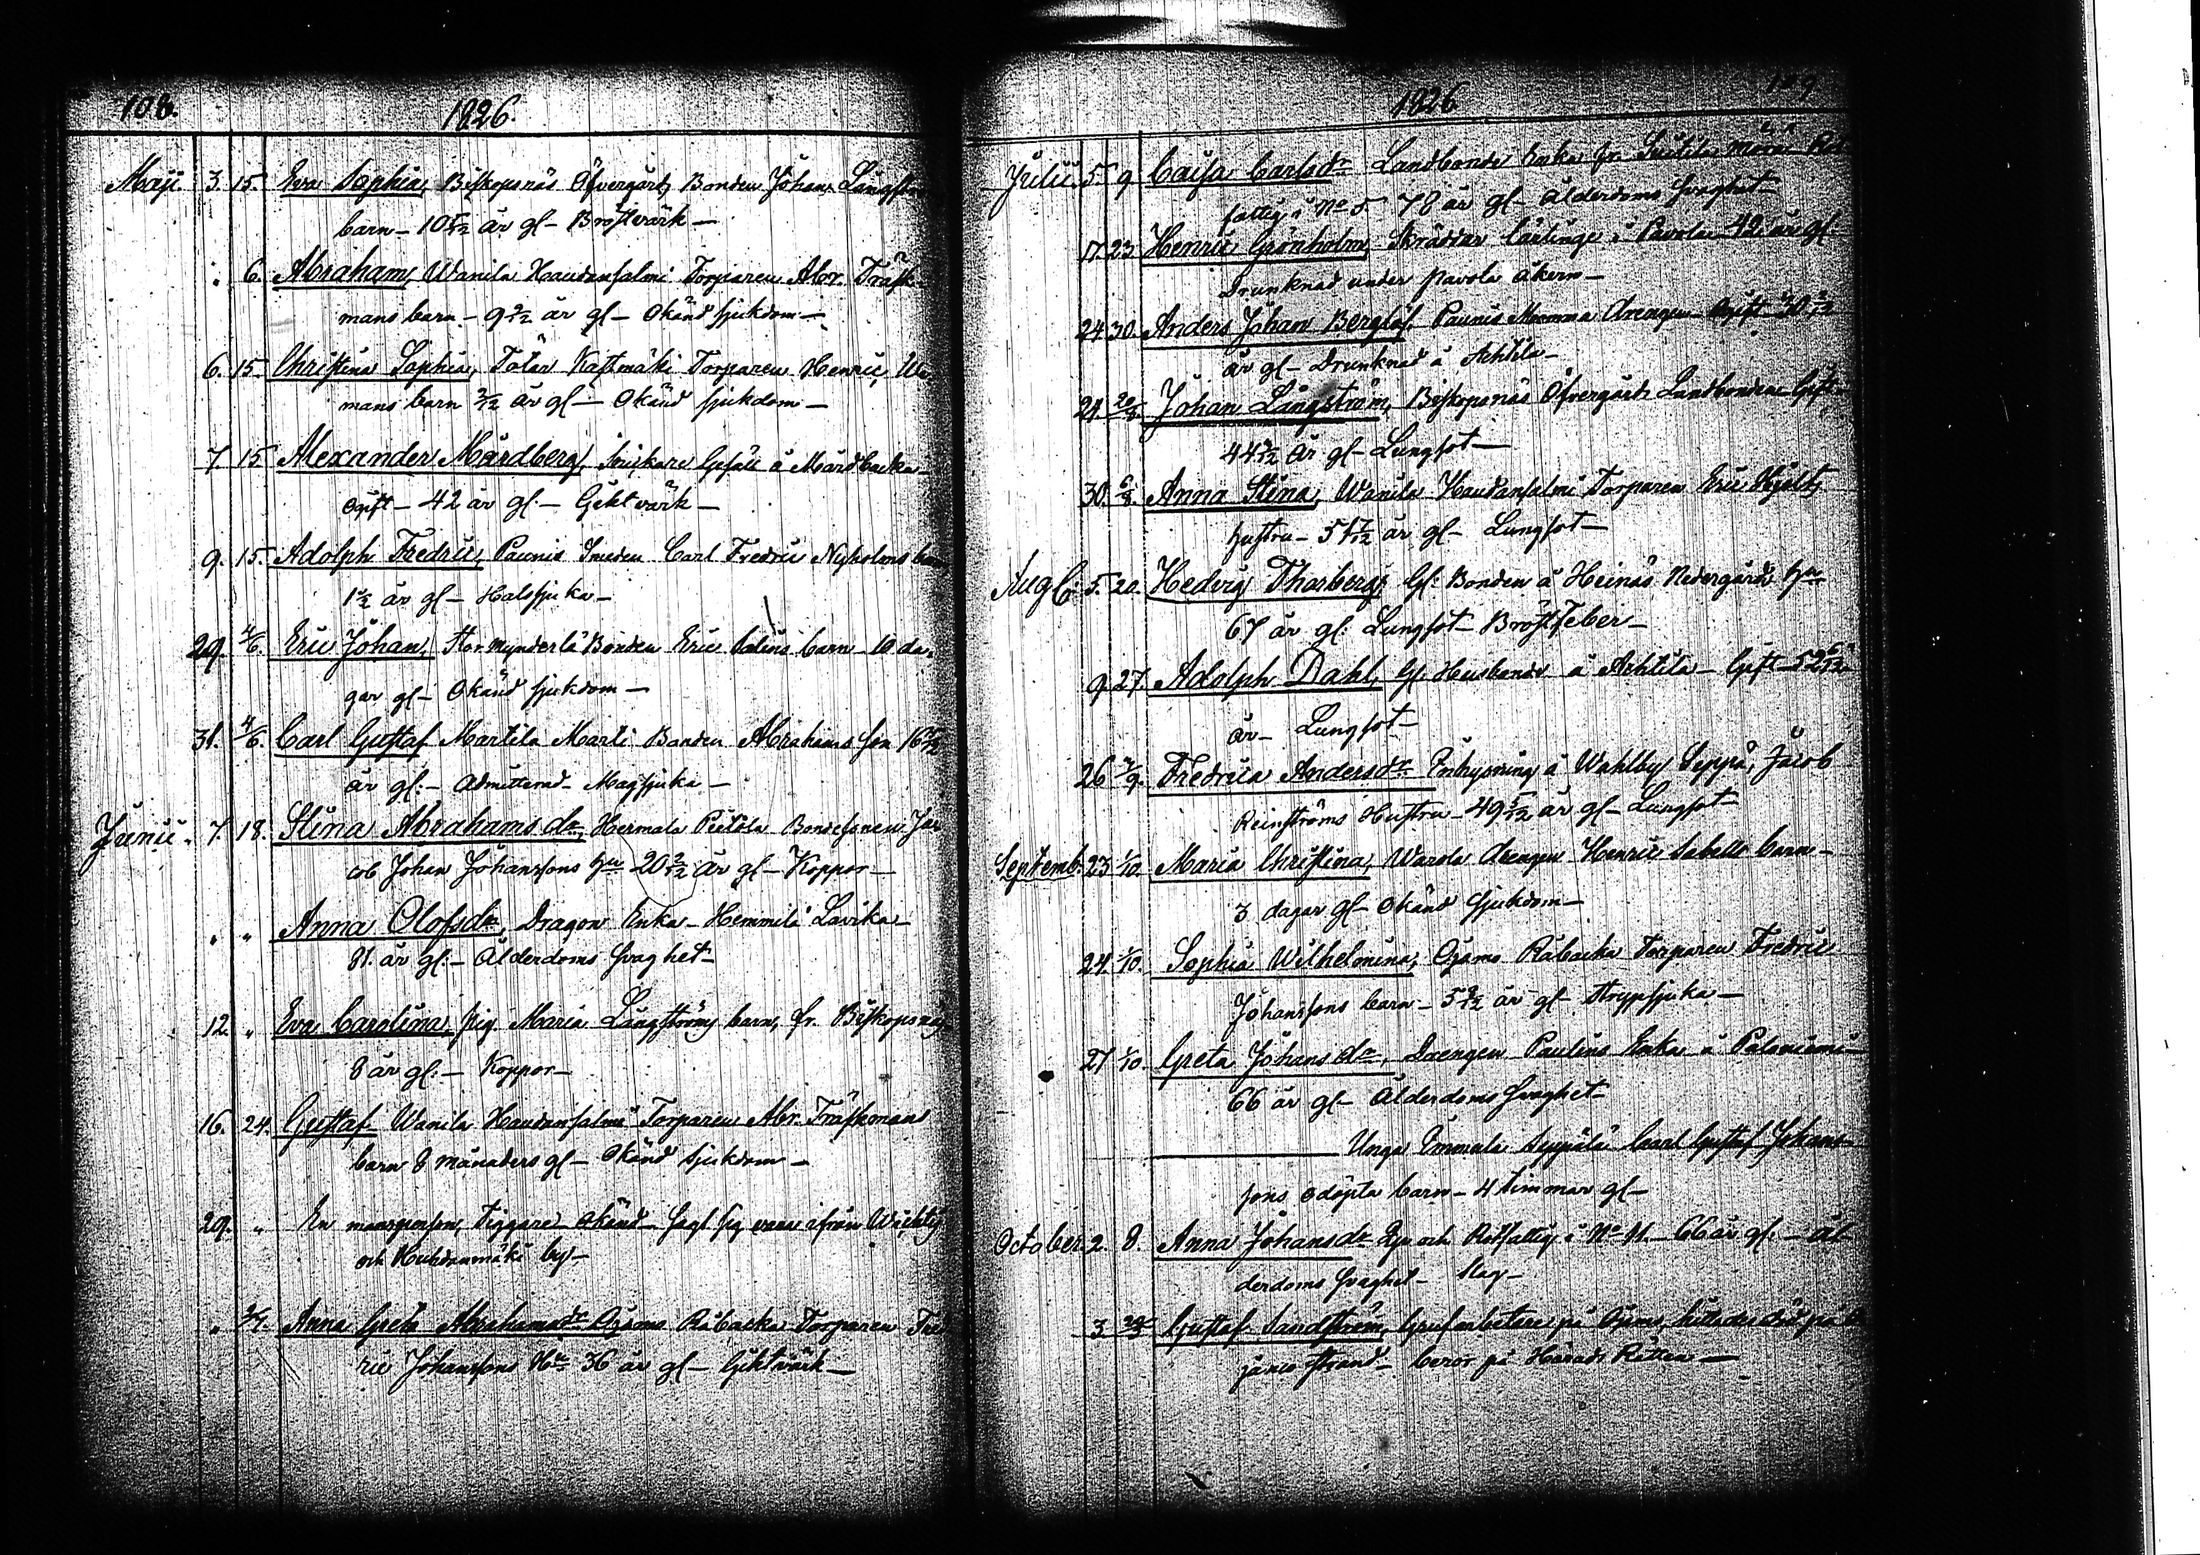 108.
1826.
Maji 3. 15. Eva Sophia, Biskopsnäs Öfvergårds Bonden Johan Långström
barn – 10 5/12 år gl – Bröstvärk –
" 6. Abraham, Wanila Haudansalmi Torparen Abr. Träsk-
mans barn – 9 9/12 år gl – Okänd sjukdom –
6. 15. Christina Sophia, Tötar Kastmäki Torparen Henric
mans barn 3/12 år gl – Okänd sjukdom –
7. 15 Alexander Mårdberg, Snickare Gesäll å Mårdbacka –
Ogift – 42 år gl. – Giktvärk –
9. 15. Adolph Fredric, Paunis Smeden Carl Fredric Nyholms barn
år gl – Halssjuka –
29. 4/6. Eric Johan, Stor Mynderlä Bonden Eric barn – 10 da-
gar gl – Okänd sjukdom –
31. 4/6. Carl Gustaf Martila Marti Bonden Abrahams son 16 5/12
år gl: – Admitterad – Magsjuka –
Junii. 7. 18. Stina Abrahamsdr, Hermala Pietola Bondesonen Ja-
cob Johan Johanssons hu 20 2/12 år gl – Koppor –
" " Anna Olofsdr, Dragon Enka – Hemmilä Lavika –
81. år gl: – Ålderdoms svaghet –
12. " Eva Carolina, pig. Maria Långströms barn, fr. Biskopsnäs
8 år gl: – Koppor –
16. 24. Gustaf Wanila Haudansalmi Torparen Abr. Träskmans
barn 8 månaders gl – Okänd sjukdom –
29. " En mansperson, tiggare okänd – sagt sig vara ifrån Wichtis
och Huhdanmäki by –
" 2/7. Anna Greta Abrahamsdr Ojamo Råbacka Torparen Fred-
ric Johanssons Hu 36 år gl – Giktvärk –
109
1826
Julii. 5. 9 Caisa Carlsdr Landbonde Enka fr. Suitila
fattig i No 5. 78 år gl – Ålderdoms svaghet –
17. 23. Henric Grönholm, Skräddar Lärlinge i Pavola 42 år gl.
Drunknad under Pavola åkern –
24 30. Anders Johan Berglöf, Paunis Mamma Drengen Ogift 30
år gl – Drunknad å Achtila –
24. 20/8. Johan Långström, Biskopsnäs Öfvergårds Landbonden Gift
44 år gl – Lungsot –
30. 6/8 Anna Stina, Wanila Haudansalmi Torparen Eric Hjelts
hustru – 54 7/12 år gl – Lungsot –
Augti 5. 20. Hedvig Thorberg, Gl: Bonden å Heinäs Nedergårds hu
67 år gl: Lungsot – Bröstfeber –
9. 27. Adolph Dahl, Gl. Husbonde å Achtila – Gift – 52 6/12
år – Lungsot –
26 3/9. Fredrica Andersdr Inhysning å Wahlby Seppä, Jacob
Reinströms Hustru – 49 5/12 år gl – Lungsot –
Septemb. 23 1/10. Maria Christina, Warola drengen Henric Sabells barn –
3 dagar gl – Okänd sjukdom –
24. 1/10. Sophia Wilhelmina, Ojamo Råbacka Torparen Fredric
Johanssons barn – 5 8/12 år gl – Strypsjuka –
27 1/10. Greta Johansdr, Drengen Paulins Enka å Paloniemi –
66 år gl – Ålderdoms svaghet –
Unga Immula Seppälä Carl Gustaf Johans-
sons odöpta barn – 4 timmar gl –
October. 2. 8. Anna Johansdr och Rotfattig i No 11. – 66 år gl. – ål-
derdoms svaghet – Slag –
3 Gustaf Sandström, Grufarbetare på Ojamo, hittades död på
järvi strand – beror på Härads Rätten –